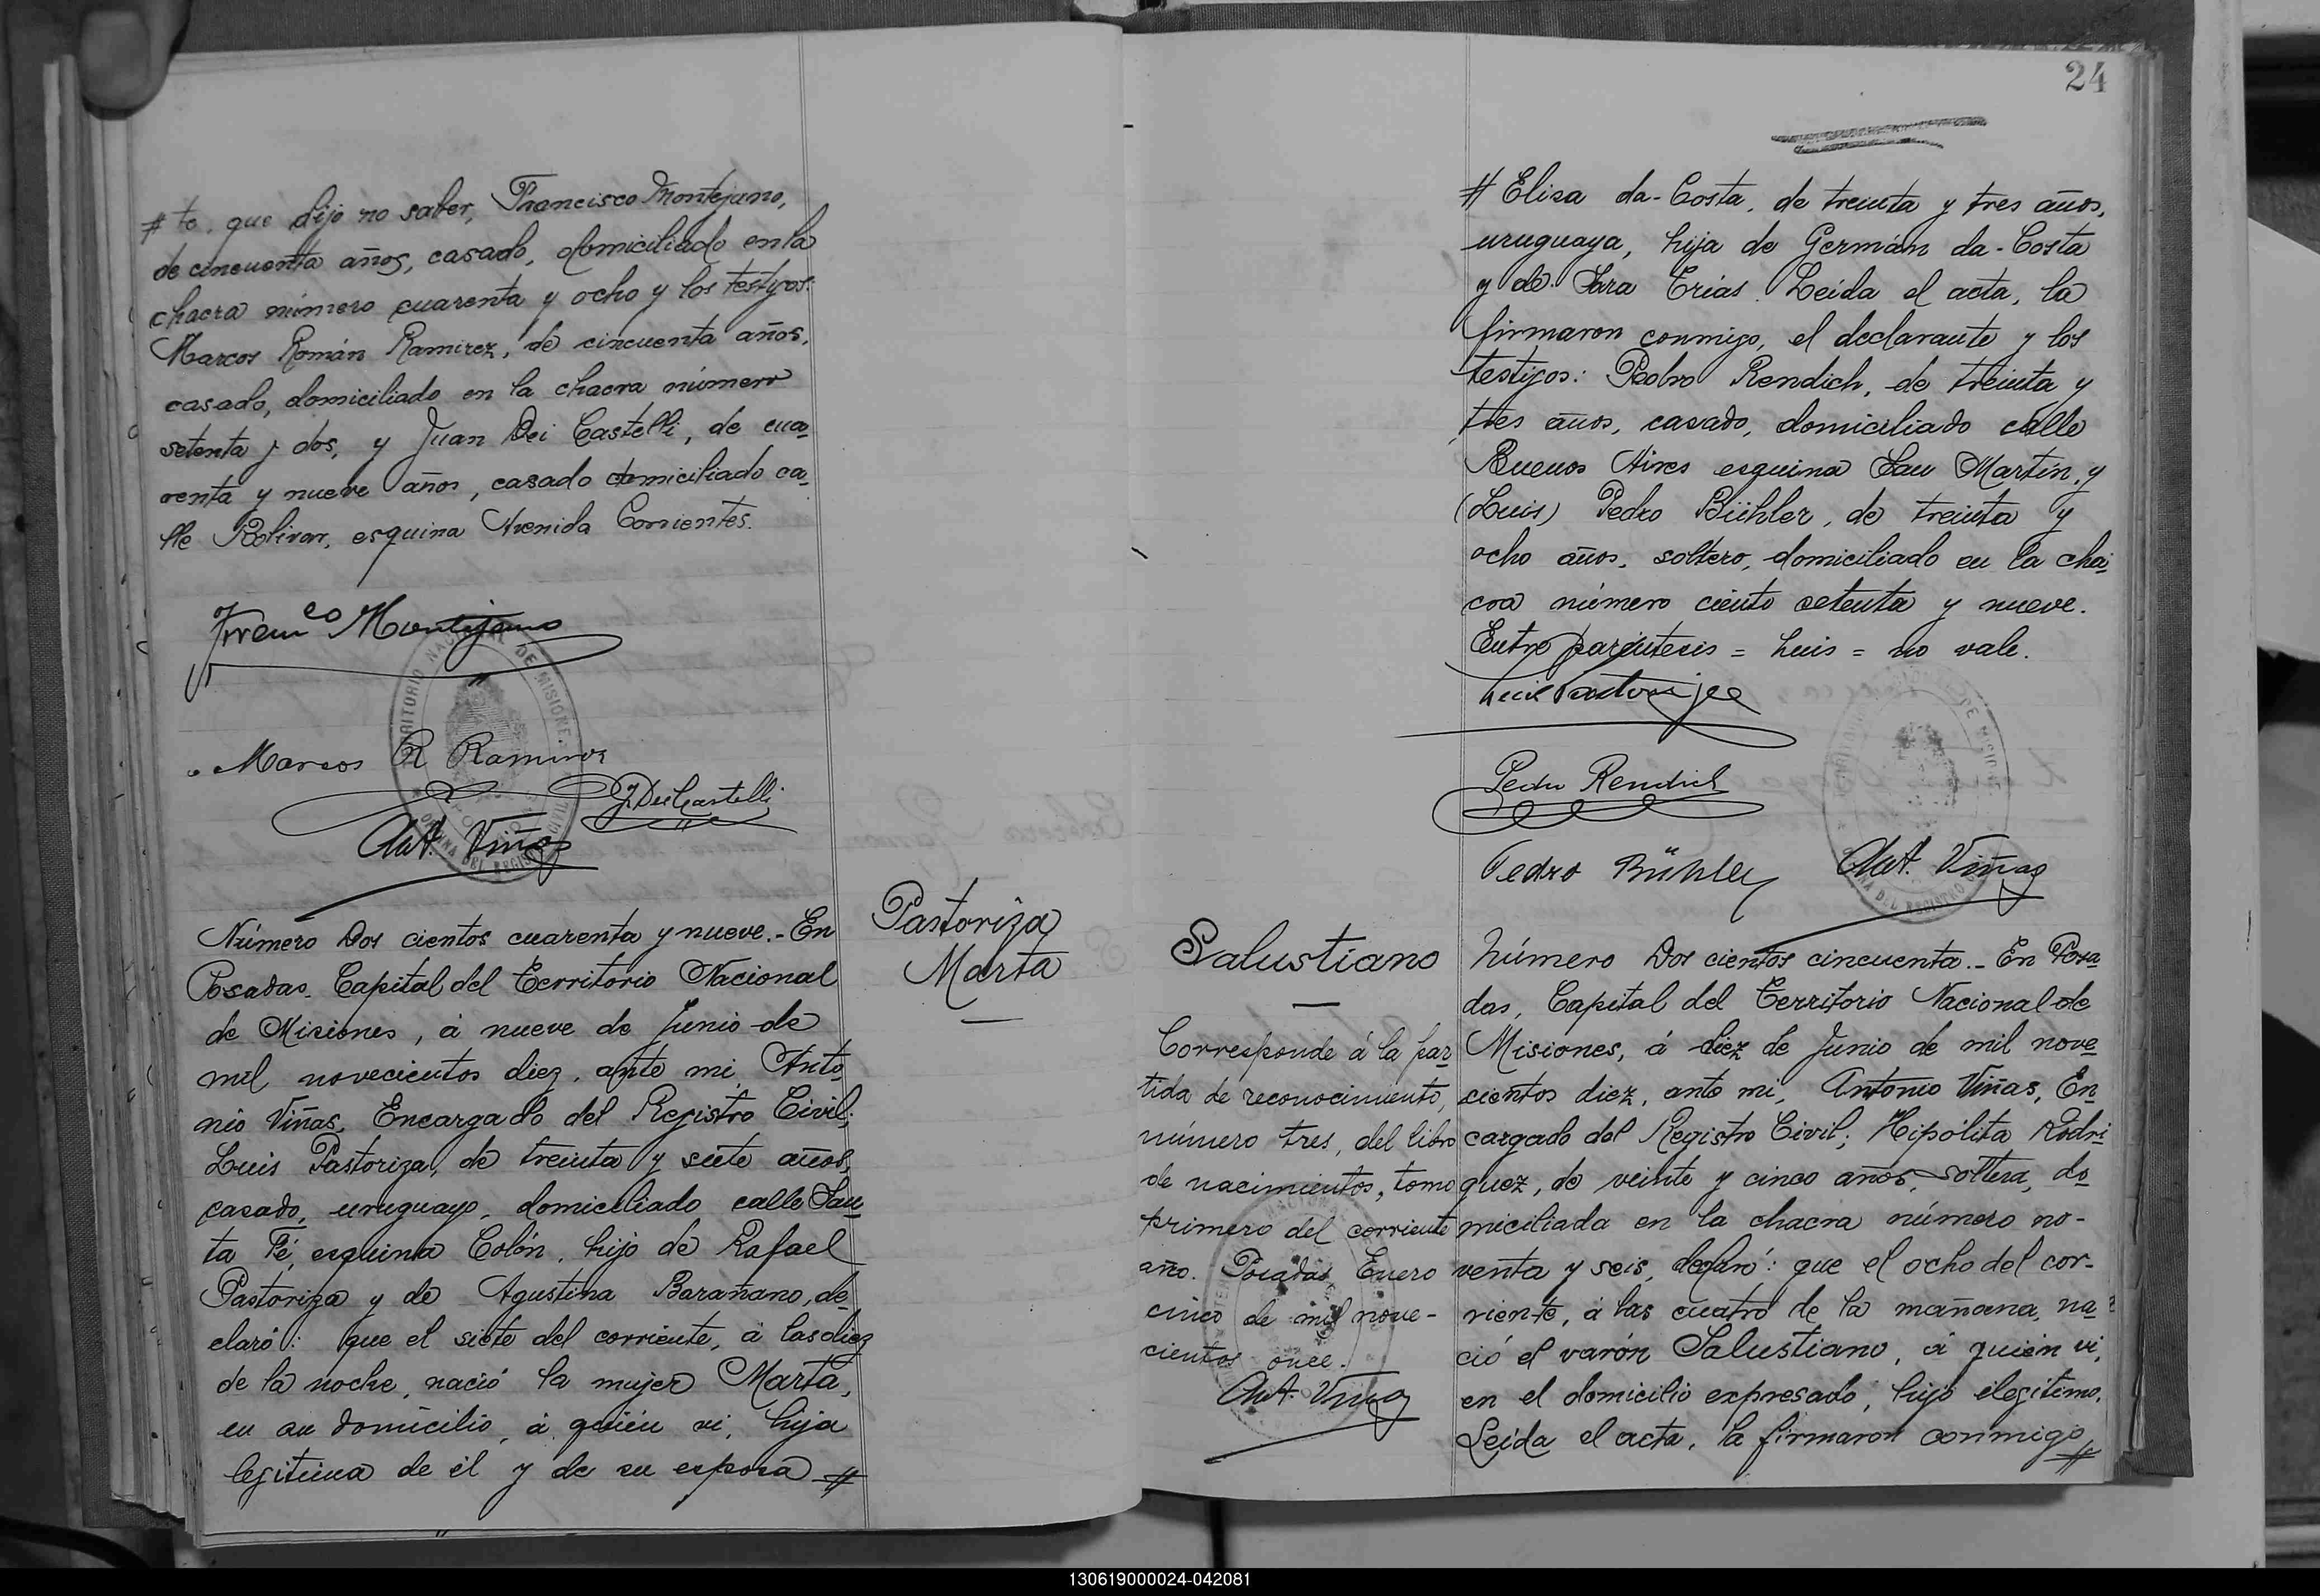 # te, que dijo no saber, Francisco Montejano,
de cincuenta años, casado, domiciliado en la
chacra número cuarenta y ocho y los testigos:
Marcos Román Ramirez, de cincuenta años,
casado, domiciliado en la chacra número
setenta y dos, y Juan Dei Castelli, de cua-
renta y nueve años, casado domiciliado ca-
lle Bolívar, esquina Avenida Corrientes.
Franco Montejano
Marcos R Ramirez
J. Dei Castelli
Ant. Viñas
Pastoriza
Marta
Número Dos cientos cuarenta y nueve.- En
Posadas, Capital del Territorio Nacional
de Misiones, á nueve de Junio de
mil novecientos diez, ante mi, Anto-
nio Viñas, Encargado del Registro Civil;
Luis Pastoriza, de treinta y siete años,
casado, uruguayo, domiciliado calle San-
ta Fé, esquina Colón, hijo de Rafael
Pastoriza y de Agustina Barañano, de-
claró: que el siete del corriente, á las diez
de la noche, nació la mujer Marta,
en su domicilio, á quién vi, hija
legitima de él y de su esposa #
24
# Elisa da-Costa, de treinta y tres años,
uruguaya, hija de Germán da-Costa
y de Sara Erias. Leida el acta, la
firmaron conmigo, el declarante y los
testigos: Pedro Rendich, de treinta y
tres años, casado, domiciliado calle
Buenos Aires esquina San Martin, y
(Luis) Pedro Bühler, de treinta y
ocho años, soltero, domiciliado en la cha-
cra número ciento setenta y nueve.
Entre paréntesis = Luis = no vale.
Luis Pastoriza
Pedro Rendich
Pedro Bühler
Ant. Viñas
Salustiano
Corresponde á la par
tida de reconocimiento,
número tres, del libro
de nacimientos, tomo
primero del corriente
año. Posadas, Enero
cinco de mil nove-
cientos once.
Ant. Viñas
Número Dos cientos cincuenta.- En Posa
das, Capital del Territorio Nacional de
Misiones, á diez de Junio de mil nove
cientos diez, ante mi, Antonio Viñas, En
cargado del Registro Civil; Hipólita Rodri
guez, de veinte y cinco años, soltera, do
miciliada en la chacra número no-
venta y seis, declaró: que el ocho del cor-
riente, á las cuatro de la mañana, na
ció el varón Salustiano, á quien vi,
en el domicilio expresado, hijo ilegitimo.
Leida el acta, la firmaron conmigo #
130619000024-042081